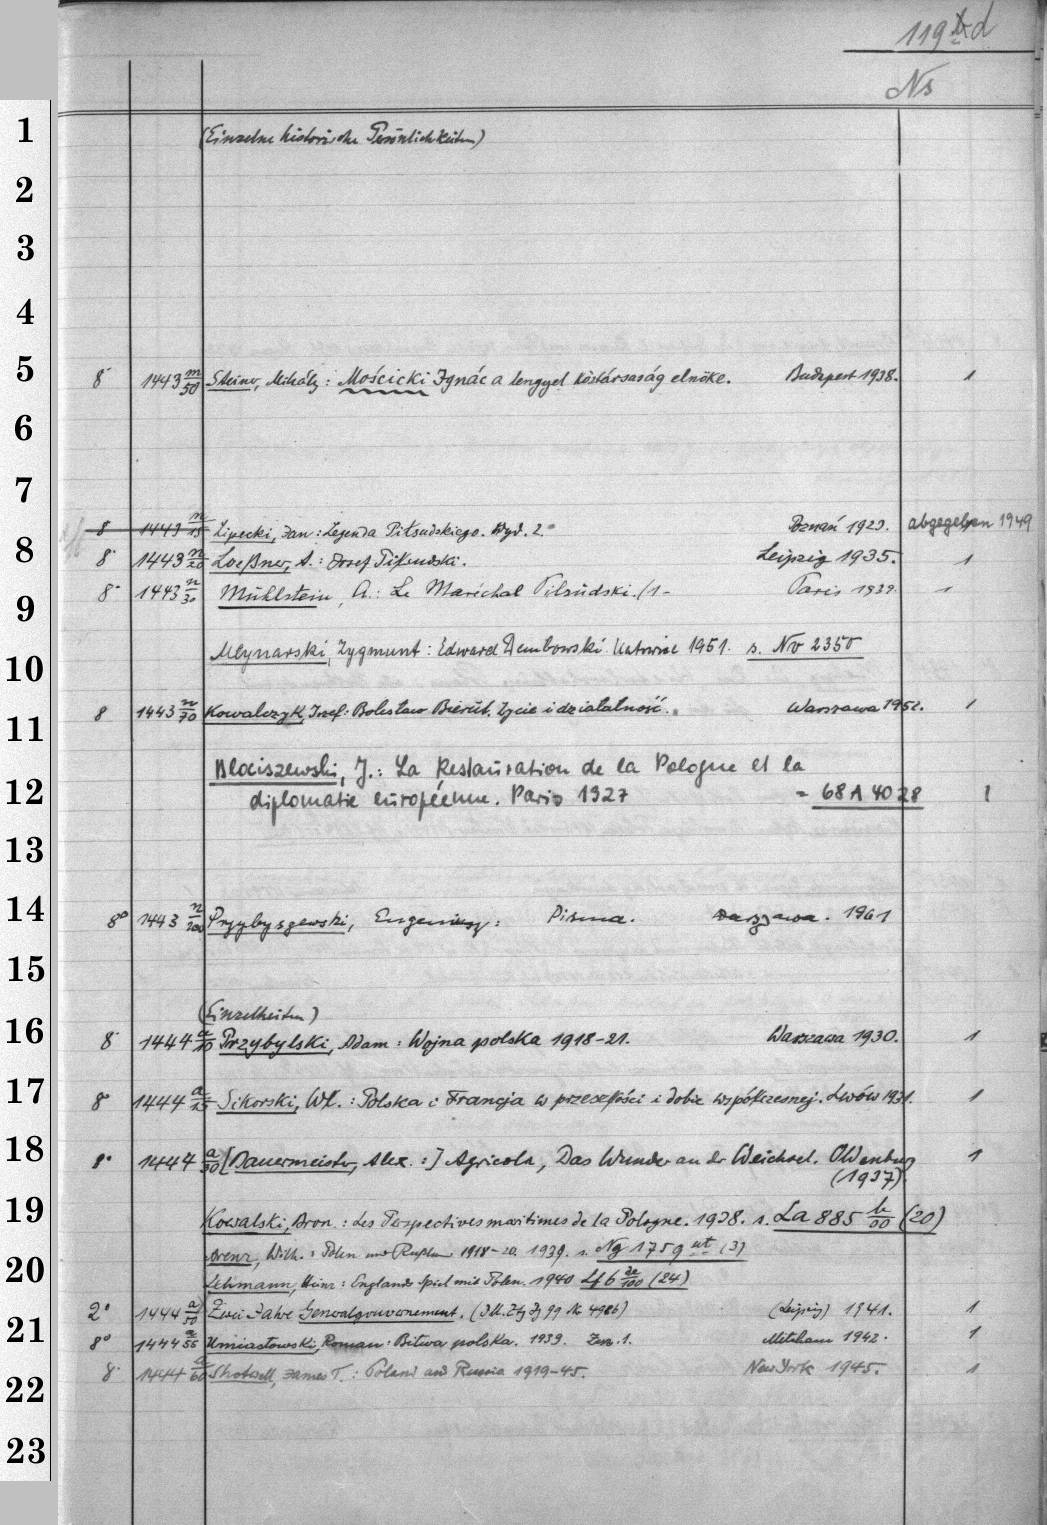 119 d
Ns
1
(Einzelne historische Persönlichkeiten)
2
3
4
5
8° 1443 m/50 Steiner, Mihály: Mościcki Ignác a lengyel köztársaság elnöke. Budapest 1938. 1
6
7
8 1443 n/15 Lipecki, Jan: Legenda Piłsudskiego. Wyd. 2. Poznań 1923. abgegeben 1949
8
8° 1443 n/20 Loeßner, A.: Josef Piłsudski. Leipzig 1935. 1
8° 1443 n/30 Mühlstein, A.: Le Maréchal Pilsudski. (1- Paris 1939. 1
9
Młynarski, Zygmunt: Edward Dembowski. Katowice 1951. s. Nv 2350
10
8 1443 n/70 Kowalczyk, Józef: Bolesław Bierut. Życie i działalność. Warszawa 1952. 1
11
Blociszewski, J.: La Restauration de la Pologne et la
diplomatie européenne. Paris 1927 = 68 A 4028 1
12
13
14
8° 1443 n/200 Przybyszewski, Eugeniusz: Pisma. Warszawa. 1961
15
(Einzelheiten)
16
8° 1444 a/10 Przybylski, Adam: Wojna polska 1918-21. Warszawa 1930. 1
17
8° 1444 a/15 Sikorski, Wł.: Polska i Francja w przeszłości i dobie współczesnej. Lwów 1931. 1
18
8° 1444 a/30 [Bauermeister, Alex.:] Agricola, Das Wunder an der Weichsel. Oldenburg 1
(1937).
19
Kowalski, Bron.: Les Perspectives maritimes de la Pologne. 1938. s. La 885 (20)
Arenz, Wilh.: Polen und Rußland 1918-20. 1939. s. Ng 1759 ut (3)
20
Lehmann, Heinz: Englands Spiel mit Polen. 1940 Lf 6 /100 (24)
2° 1444 a/50 Zwei Jahre Generalgouvernement. (Ill. Ztg Jg 99 Nr 4986) (Leipzig) 1941. 1
21
8° 1444 a/55 Umiastowski, Roman: Bitwa polska. 1939. Zesz. 1. Mitcham 1942. 1
8° 1444 a/60 Shotwell, James T.: Poland and Russia 1919-45. New York 1945. 1
22
23